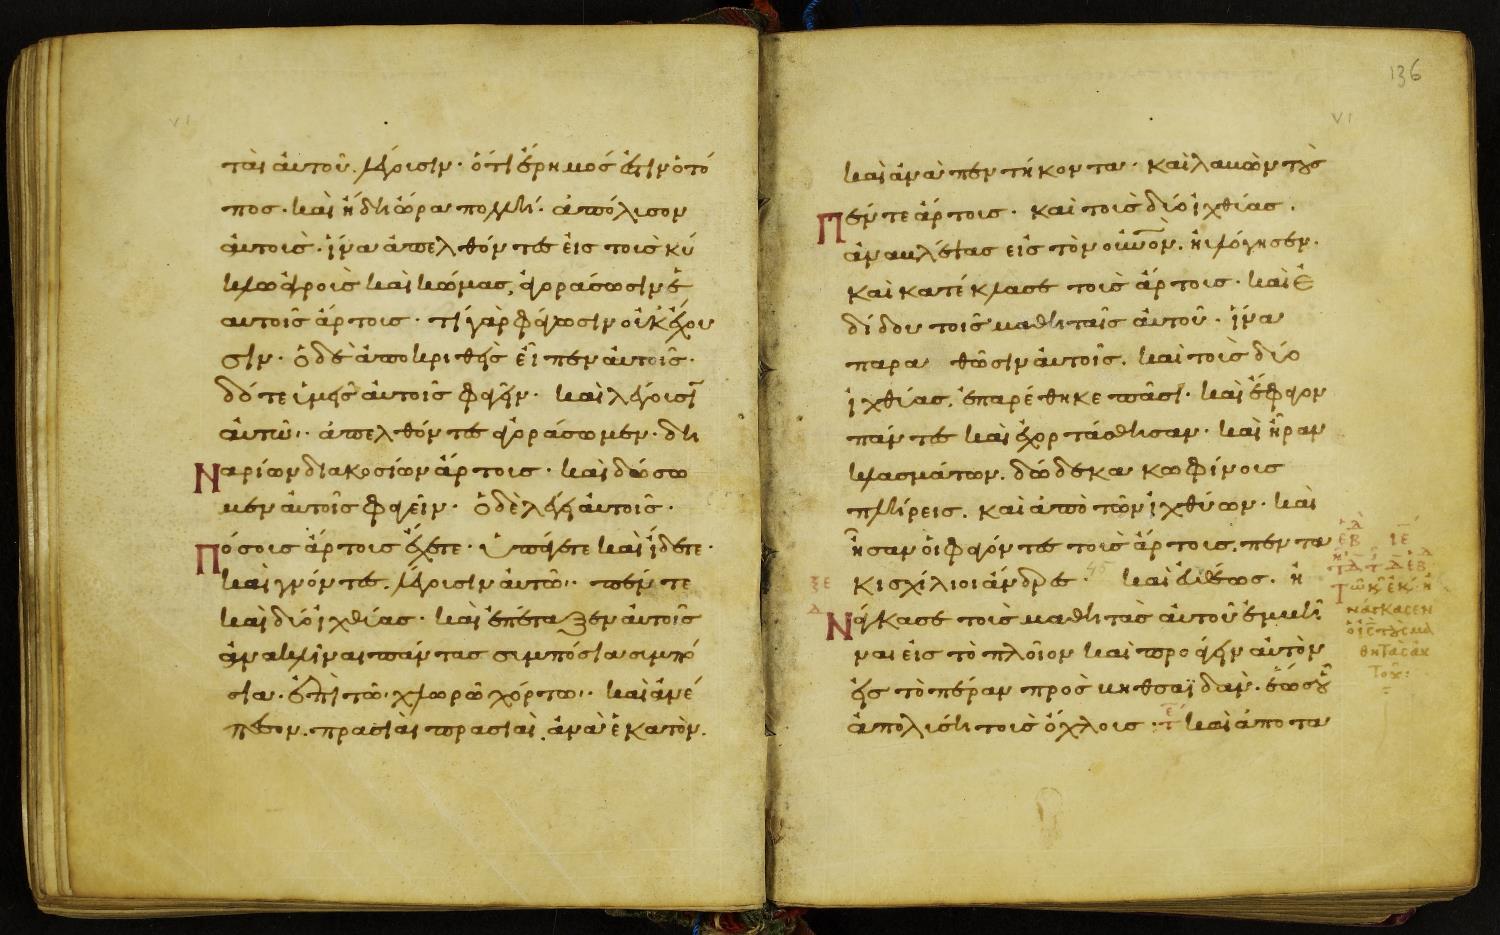 VI
ται ἀυτοῦ. λέγουσιν· ὅτι ἔρημός ἐστιν ὁ τό
πος· καὶ ἤδη ὥρα πολλή· ἀπόλυσον
ἀυτους· ἵνα ἀπελθόντες εἰς τοὺς κύ
κλω ἀγροὺς καὶ κώμας, ἀγοράσωσιν ἑ
αυτοῖς ἄρτους· τί γὰρ φάγωσιν οὐκ ἔχου
σιν· ὁ δὲ ἀποκριθεὶς εἶπεν ἀυτοῖς·
δότε ὑμεῖς ἀυτοῖς φαγεῖν· καὶ λέγουσιν
ἀυτῶ· ἀπελθόντες ἀγοράσωμεν· δη
Ναρίων διακοσίων ἄρτους· καὶ δώσω
μεν ἀυτοῖς φαγεῖν· ὁ δὲ λέγει ἀυτοῖς·
Πόσους ἄρτους ἔχετε· ὑπάγετε καὶ ἴδετε·
καὶ γνόντες. λέγουσιν ἀυτῶ· πέντε
καὶ δύο ἰχθύας· καὶ ἐπέταξεν ἀυτοῖς
ἀνακλῖναι πάντας συμπόσια συμπό
σια· ἐπὶ τῶ χλωρῶ χόρτω· καὶ ἀνέ
πεσον. πρασιαὶ πρασιαὶ, ἀνὰ ἑκατὸν.
136
VI
καὶ ἀνὰ πεντήκοντα· καὶ λαβὼν τοὺς
Πέντε ἄρτους· καὶ τοὺς δύο ἰχθύας.
ἀναβλέψας εἰς τὸν οὐνον. ηὐλόγησεν.
καὶ κατέκλασε τοὺς ἄρτους· καὶ ἐ
δίδου τοῖς μαθηταῖς ἀυτοῦ· ἵνα
παρα θῶσιν ἀυτοῖς. καὶ τοὺς δύο
ἰχθύας. ἐπαρέθηκε πᾶσι· καὶ ἔφαγον
πάντες καὶ ἐχορτάσθησαν· καὶ ἦραν
κλασμάτων. δώδεκα κωφίνους
πλήρεις. καὶ ἀπὸ τῶν ἰχθύων· καὶ
ἦσαν οἱ φαγόντες τοὺς ἄρτους. πεντα
κισχίλιοι ἄνδρες· καὶ εὐθέως. ἠ
Νάγκασε τοὺς μαθητὰς ἀυτοῦ ἐμβῆ
ναι εἰς τὸ πλοῖον καὶ προάγειν ἀυτὸν
εἰς τὸ πέραν πρὸς βηθσαϊδαν. ἕως οὗ
ἀπολύση τοὺς ὄχλους· καὶ ἀποτα
ξε
Δ
Τῶ κ ἐκ ἠ
νάγκασεν
ὁ ις τους μα
θητὰς ἀυ
τοῦ: